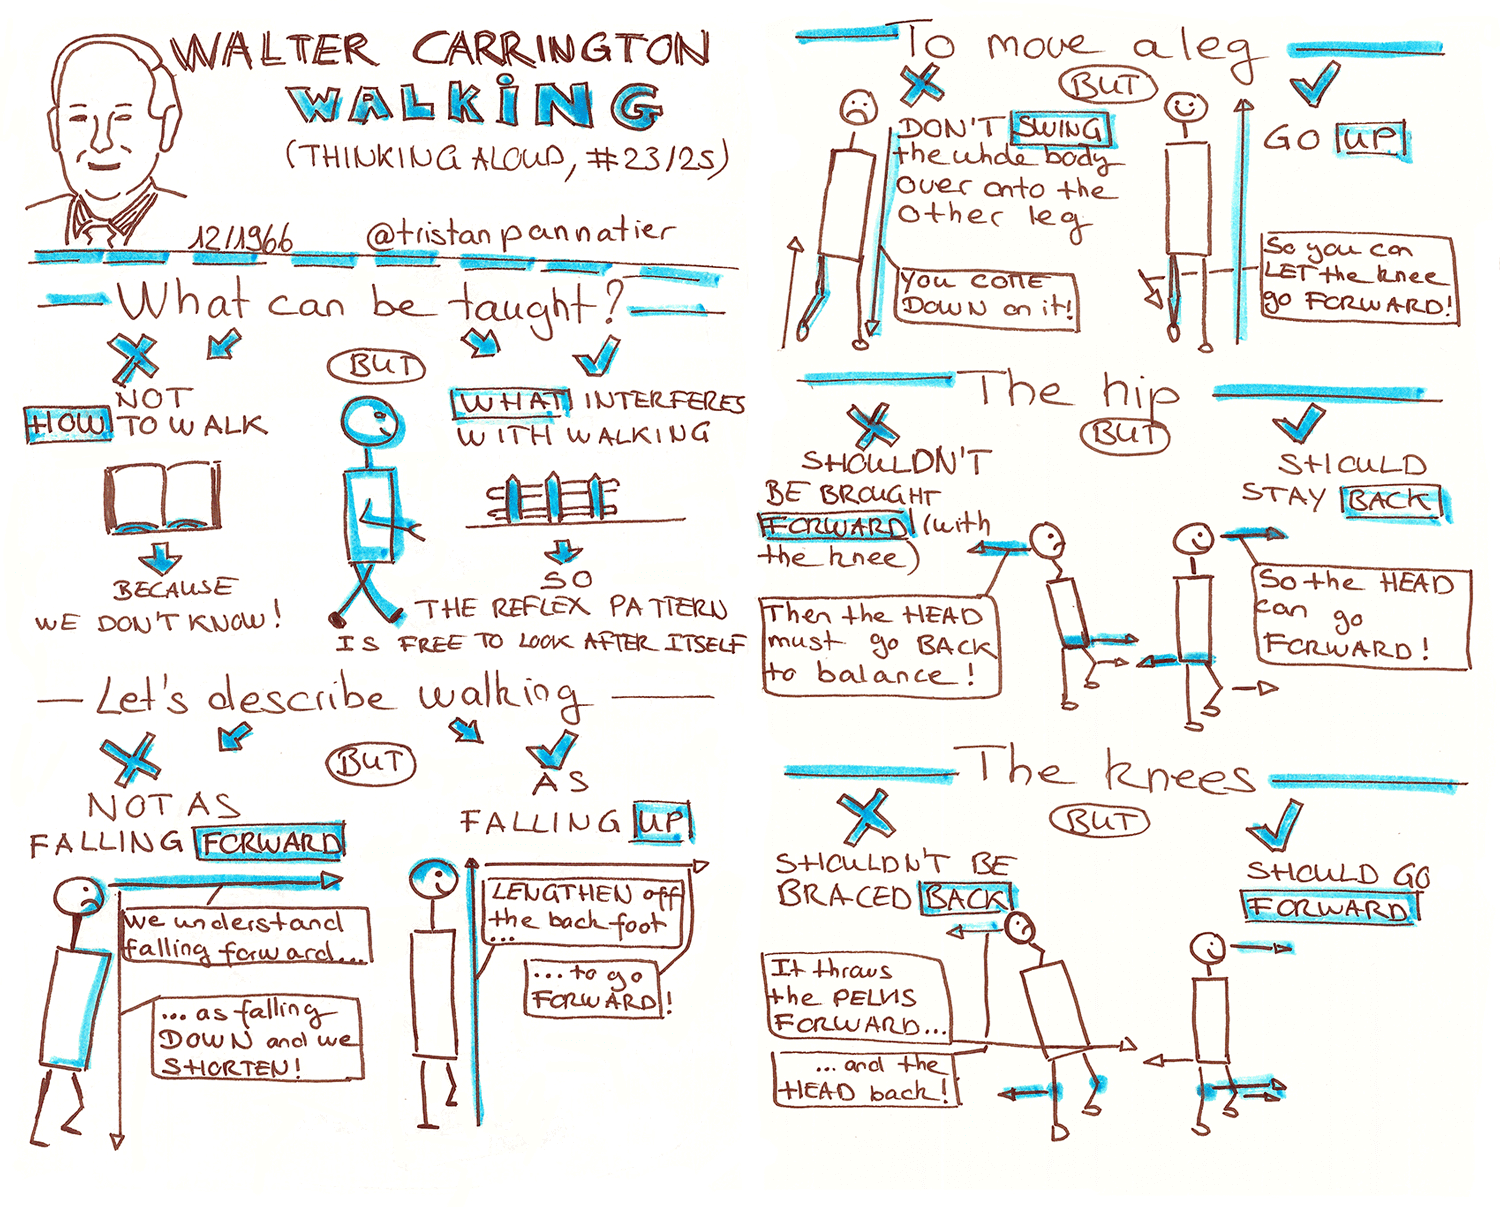 WALTER CARRINGTON
WALKING
(THINKING ALOUD, #23/25)
12/1966
@tristanpannatier
What can be taught?
NOT
HOW TO WALK
BECAUSE
WE DON'T KNOW!
BUT
WHAT INTERFERES
WITH WALKING
SO
THE REFLEX PATTERN
IS FREE TO LOOK AFTER ITSELF
Let's describe walking
NOT AS
FALLING FORWARD
we understand
falling forward...
... as falling
DOWN and we
SHORTEN!
BUT
AS
FALLING UP
LENGTHEN off
the back foot
...
... to go
FORWARD!
To move a leg
DON'T SWING
the whole body
over onto the
other leg
YOU COME
DOWN on it!
BUT
GO UP
So you can
LET the knee
go FORWARD!
The hip
SHOULDN'T
BE BROUGHT
FORWARD (with
the knee)
Then the HEAD
must go BACK
to balance!
BUT
SHOULD
STAY BACK
So the HEAD
can go
FORWARD!
The knees
SHOULDN'T BE
BRACED BACK
It throws
the PELVIS
FORWARD...
...and the
HEAD back!
BUT
SHOULD GO
FORWARD